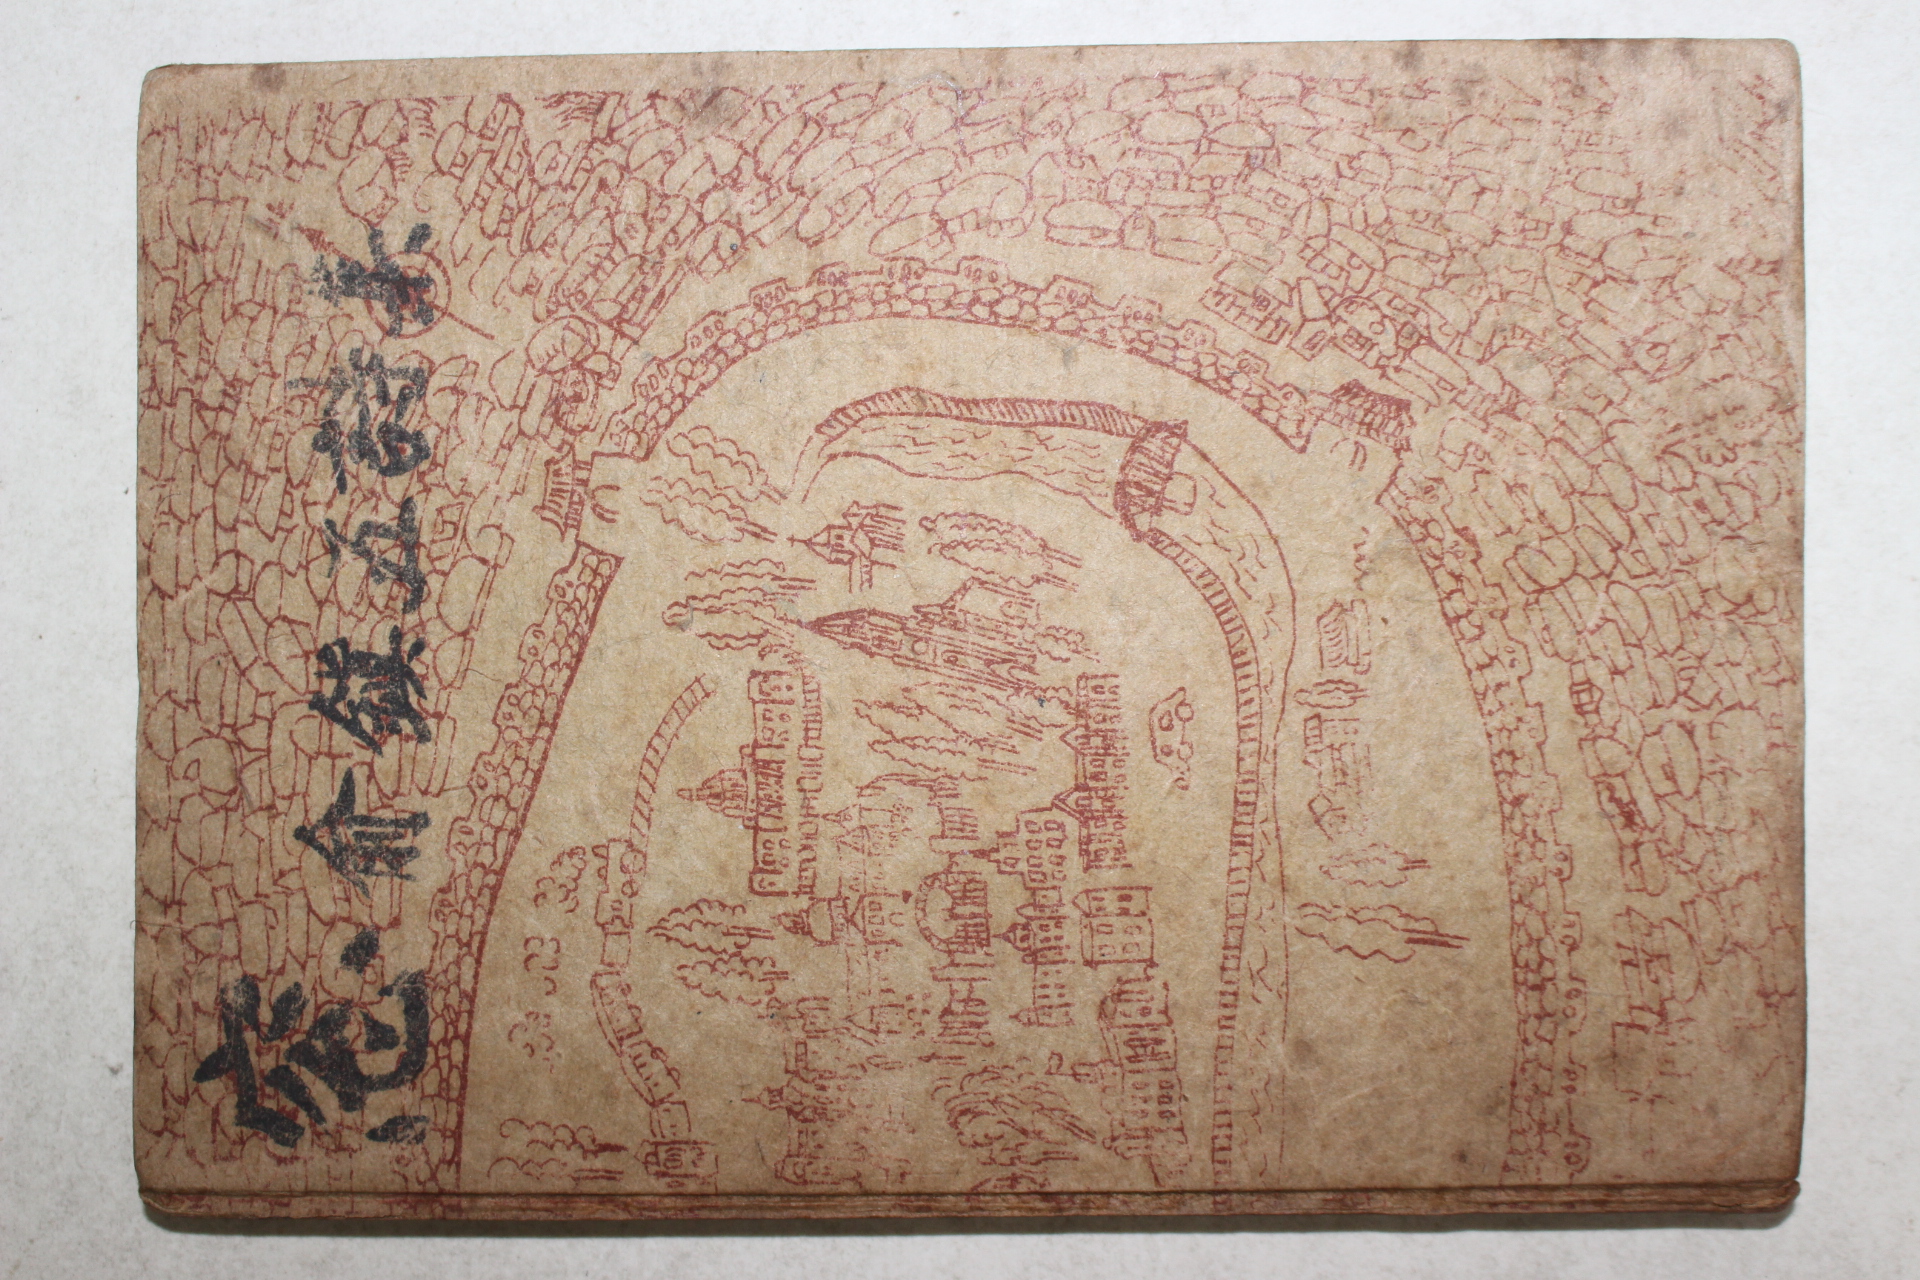 窓·兪鎭五詩集